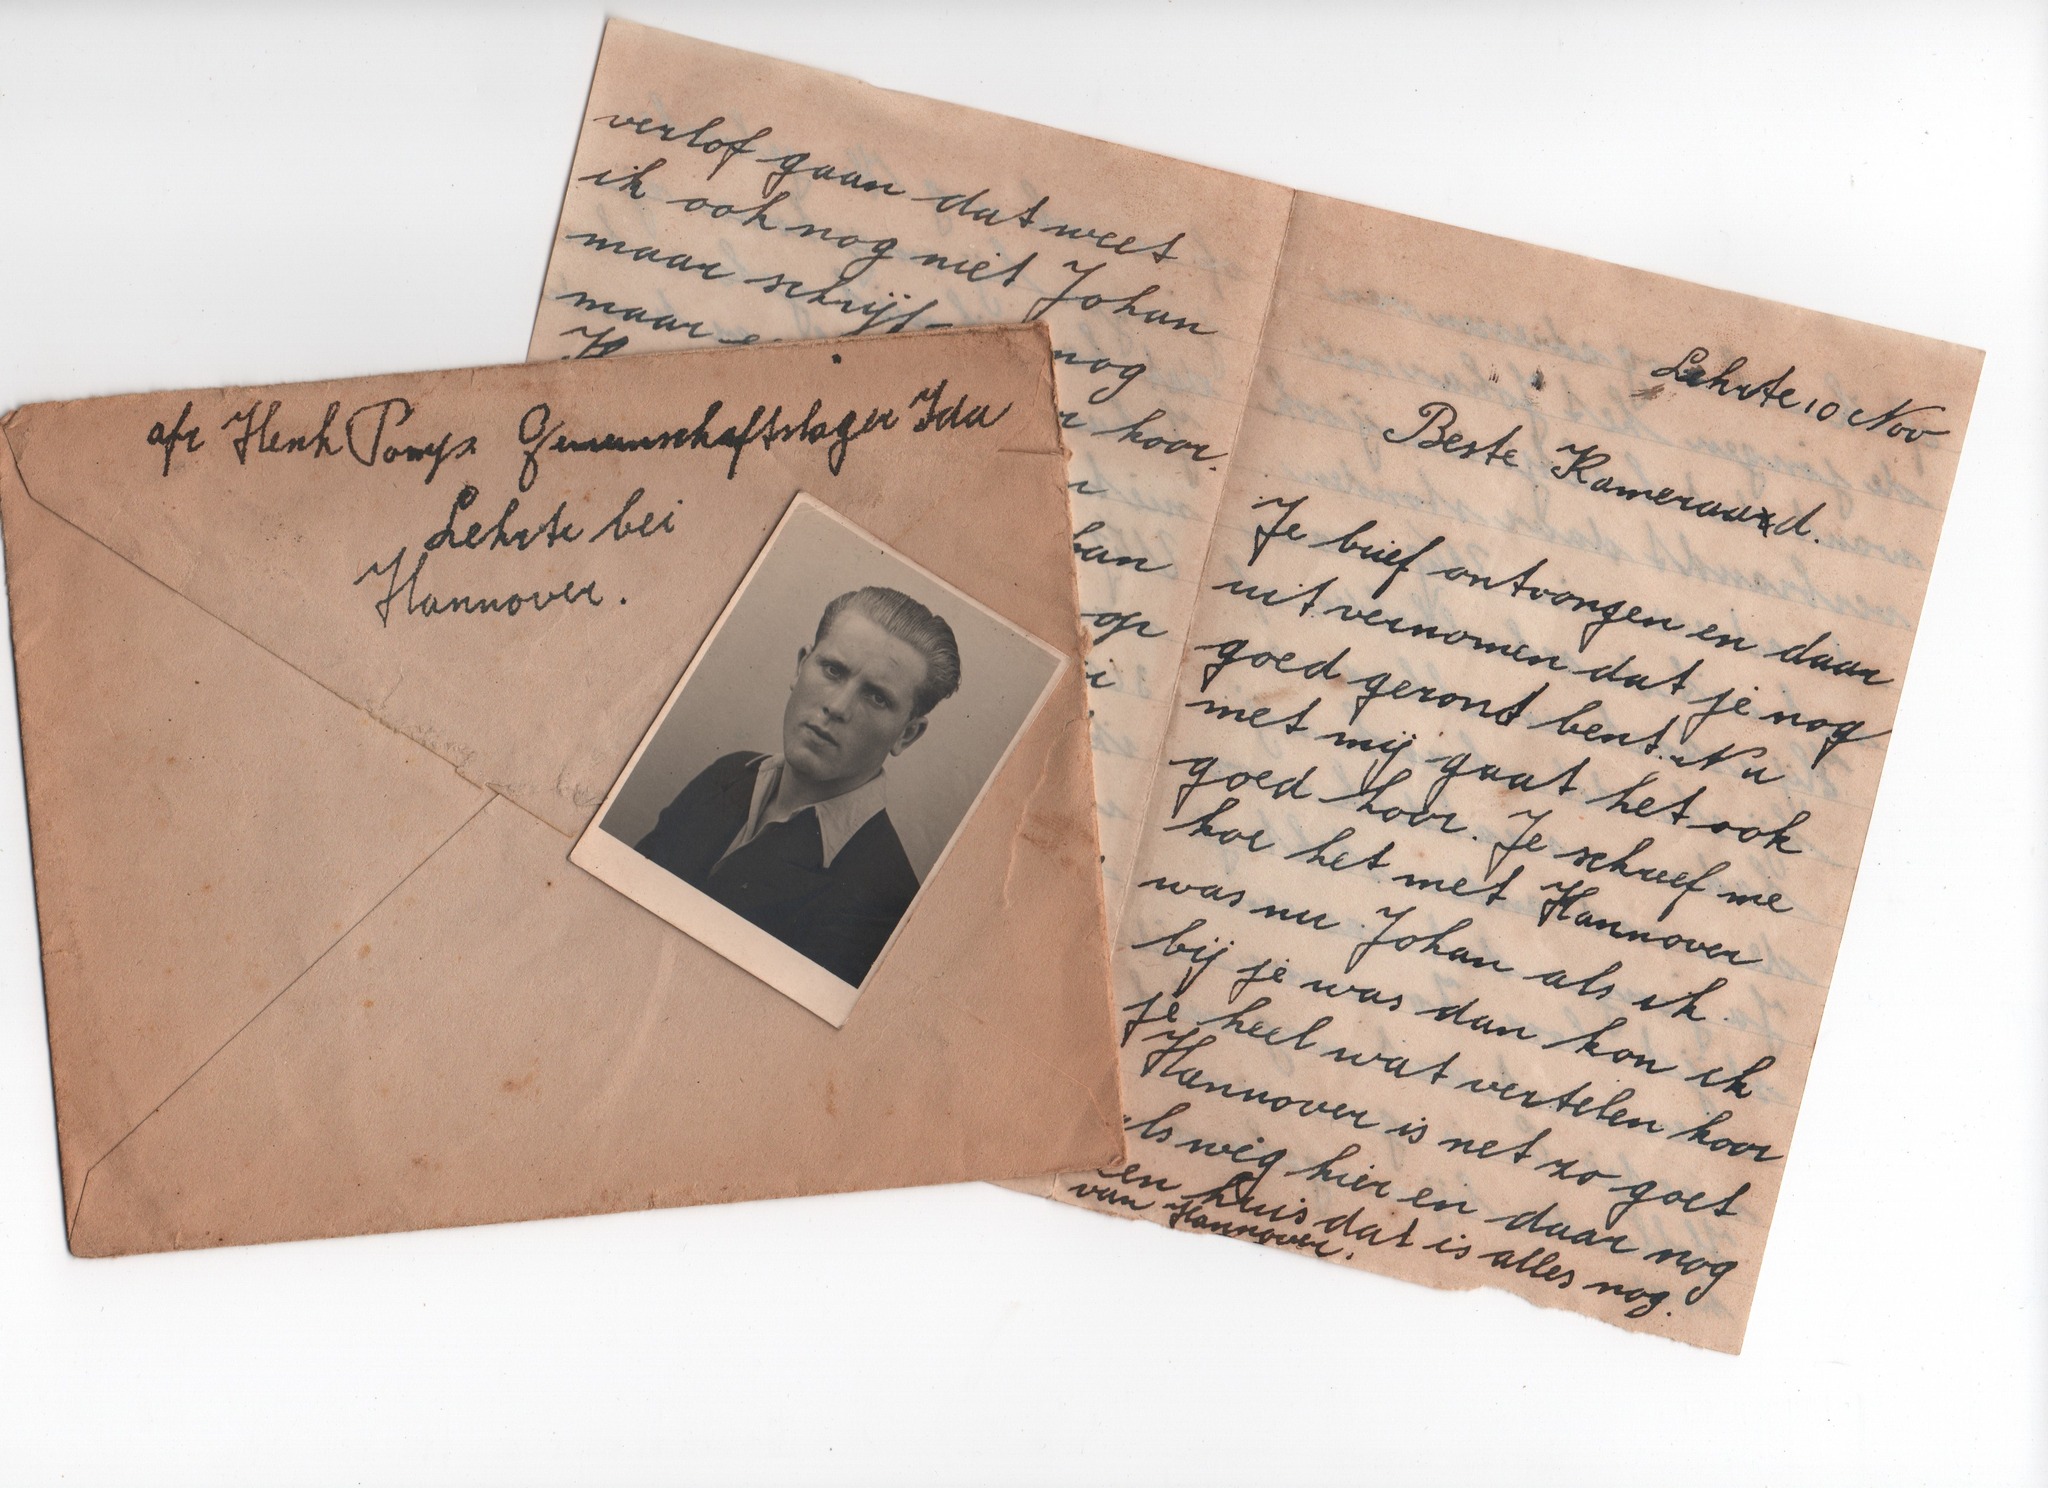 afz Henk Pomps Gemeinschaftslager Ida
Lehrte bei
Hannover.
verlof gaan dat weet
ik ook nog niet Johan
maar schrijf
maar nog
hoor.
op
Lehrte 10 Nov
Beste Kameraard.
Je brief ontvongen en daar
uit vernomen dat je nog
goed geront bent. Nu
met mij gaat het ook
goed hoor. Je schreef me
hoe het met Hannover
was nu Johan als ik
bij je was dan kon ik
je heel wat vertelen hoor
Hannover is net zo goet
als weg hier en daar nog
een huis dat is alles nog.
van Hannover.